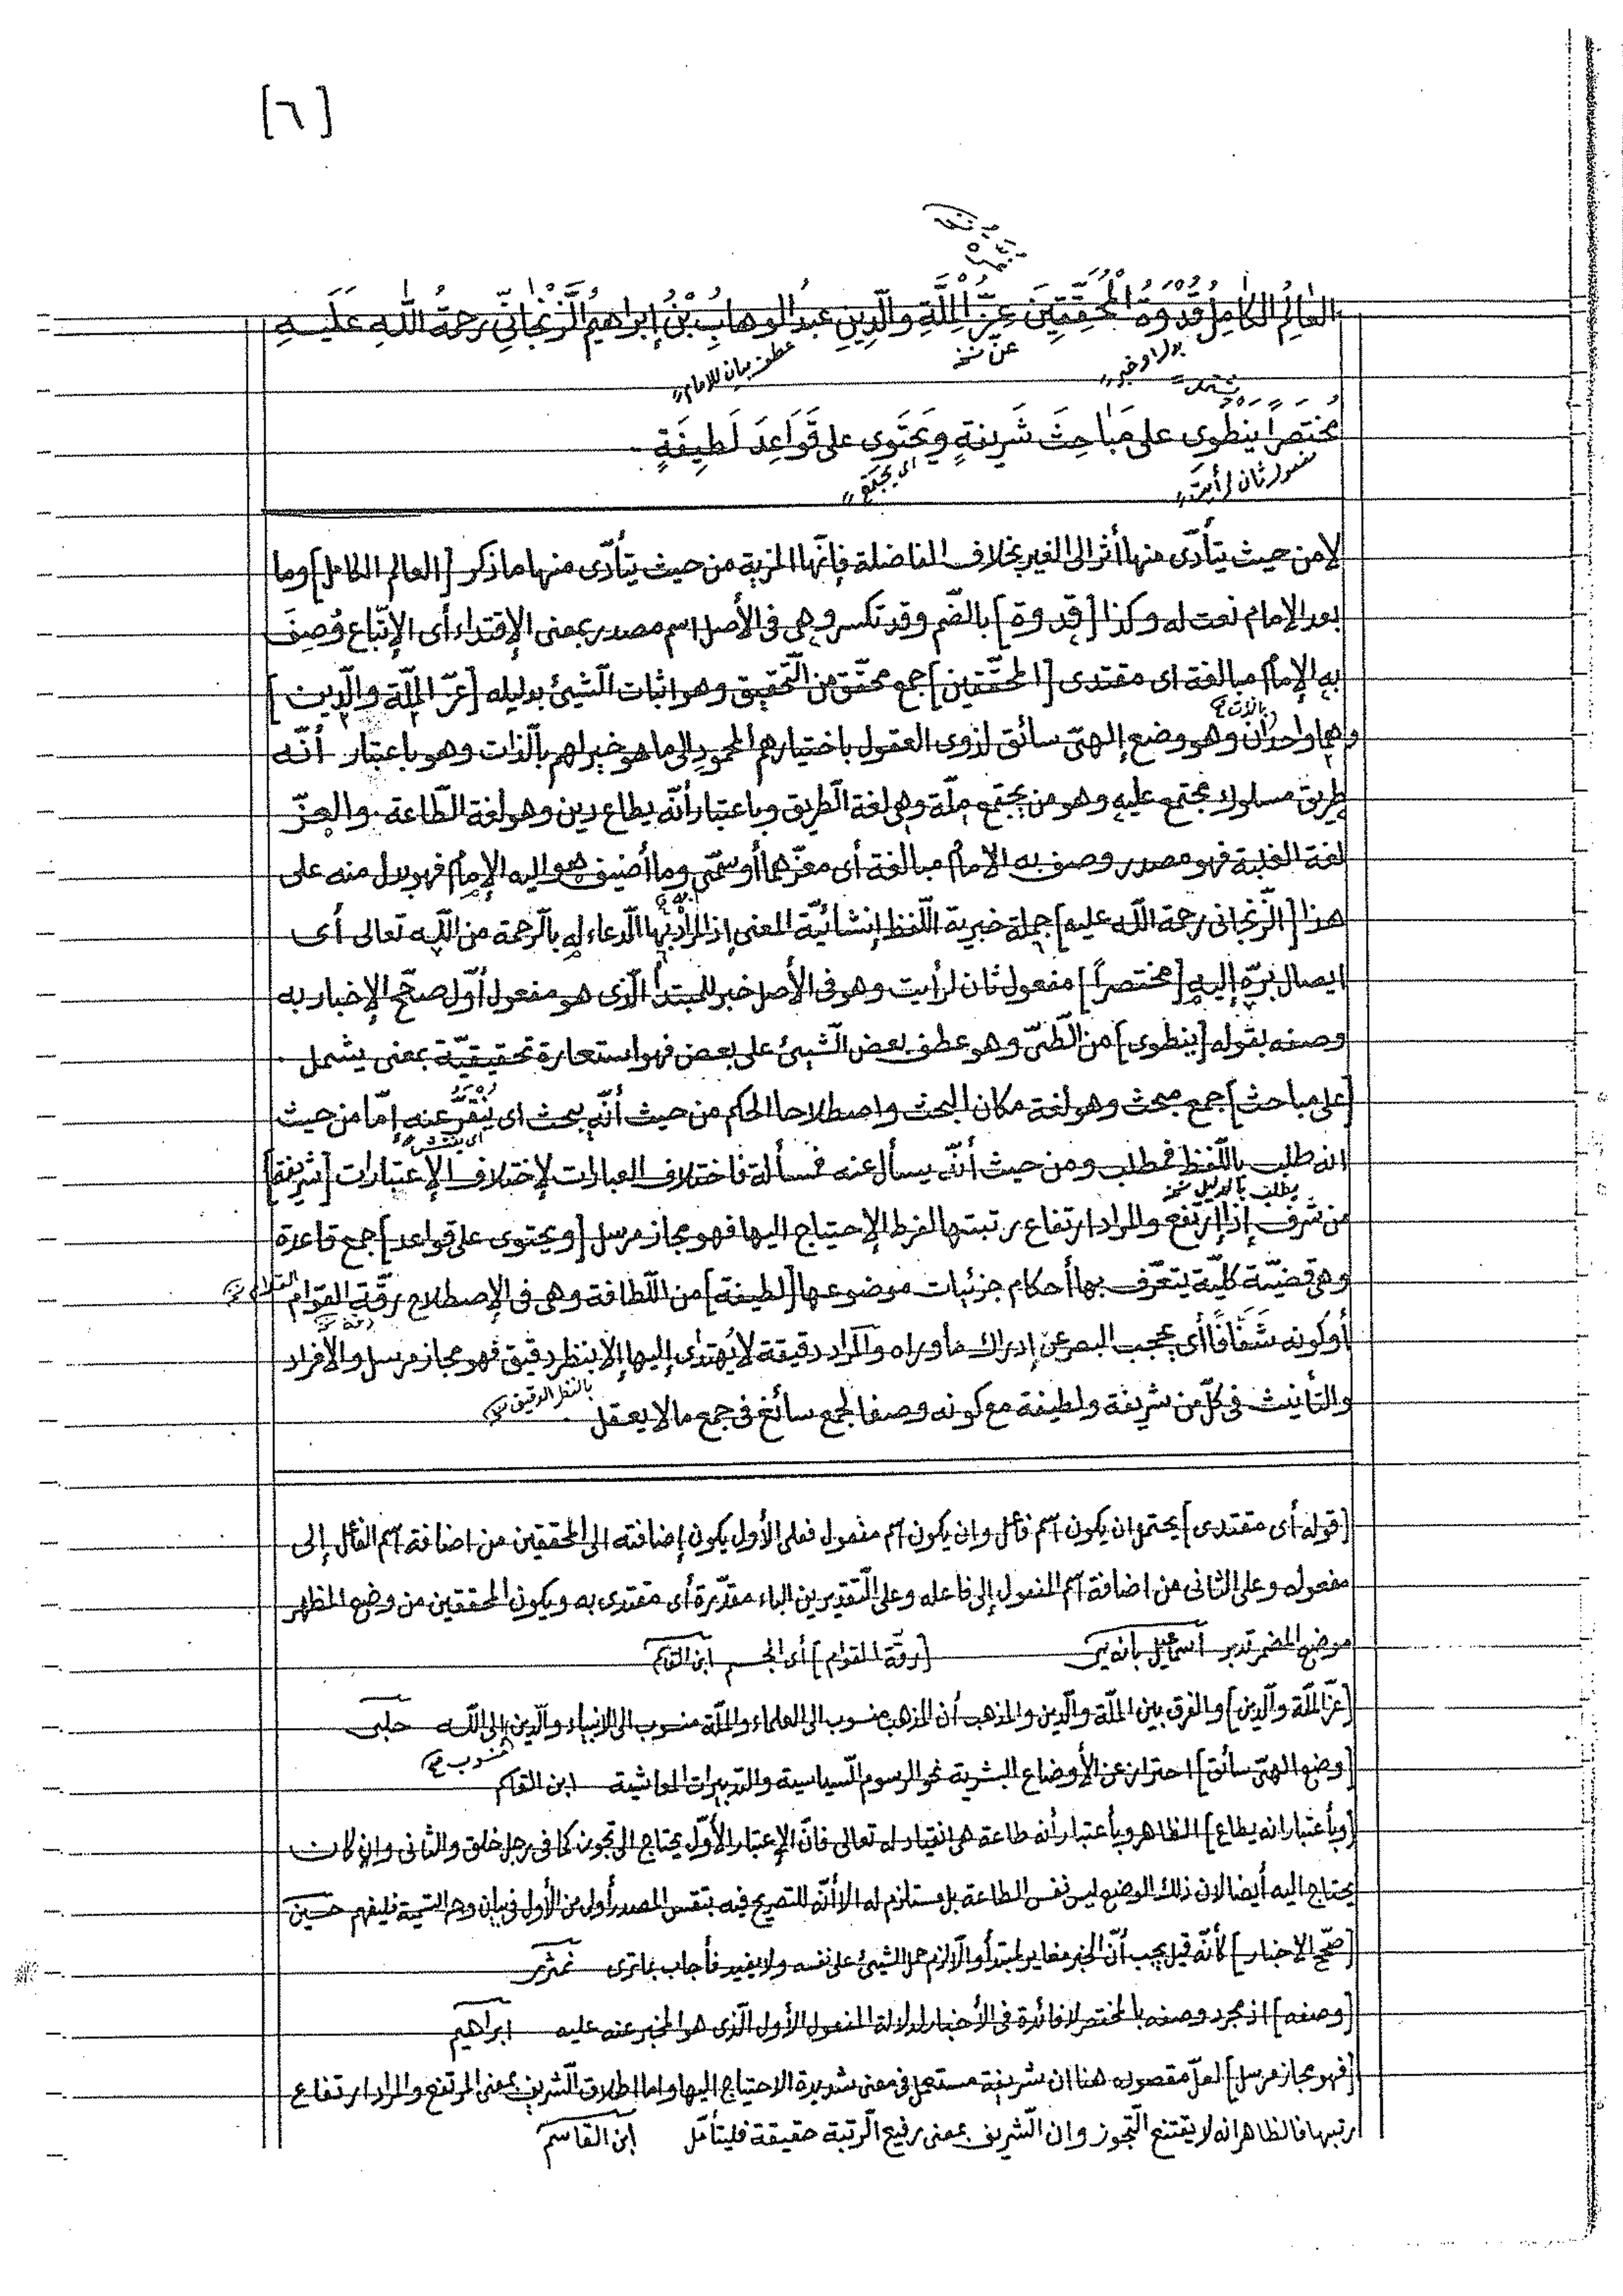 [٦]
العَالِمُ الكَامِلُ قُدْوَةُ الْمُحَقِّقِينَ عِزُّ الْمِلَّةِ وَالدِّينِ عَبْدُ الوهابِ بْنُ إبراهيمَ الزَّنْجَانِيِّ رحمةُ اللهِ عَلَيهِ
بدل او خبر
عن نسخه
عطف بيان للامام
مُختَصَراً يَنْطَوِى على مَبَاحِثَ شَرِيفَةٍ ويَحْتَوِى على قَوَاعِدَ لَطِيفَةٍ
مفعول ثان لرأيت
اى يجتمع
لا من حيث يتأدّى منها أثر الى الغير بخلاف الفاضلة فإنّها المزية من حيث يتأدّى منها ما ذكر [العالم الكامل] وما
بعد الإمام نعت له وكذا [قدوة] بالضّم وقد تكسر وهى فى الأصل اسم مصدر بمعنى الإقتداء أى الإتّباع وُصِفَ
به الإمام مبالغة اى مقتدى [المحقّقين] جمع محقّق من التّحقيق وهو اثبات الشّيئ بدليله [عزّ الملّة والدّين]
وهما واحد وهو وضع إلهىّ سائق لذوى العقول باختيارهم المحمود الى ما هو خير لهم بالذّات وهو باعتبار أنّه
طريق مسلوك مجتمع عليه وهو من يجتمع ملّة وهى لغة الطّريق وباعتبار أنّه يطاع دين وهو لغة الطّاعة. والعزّ
لغة الغلبة فهو مصدر وصف به الامام مبالغة أى معزّهما أو سمّى وما أضيف هو اليه الإمام فهو بدل منه على
هذا [الزّنجانى رحمة الله عليه] جملة خبرية اللّفظ إنشائيّة المعنى إذ المراد بها الدّعاء له بالرّحمة من الله تعالى أى
ايصال برّه إليه [مختصراً] مفعول ثان لرأيت وهو فى الأصل خبر للمبتدأ الّذى هو مفعول أوّل صحّح الإخبار به
وصفه بقوله [ينطوى] من الطّىّ وهو عطف بعض الشّيئ على بعض فهو استعارة تحقيقيّة بمعنى يشمل.
[على مباحث] جمع مبحث وهو لغة مكان البحث واصطلاحا الحكم من حيث أنّه يبحث اى يُنْقَرُ عنه امّا من حيث
اى يفتش
انه طلب باللّفظ فمطلب ومن حيث أنّه يسأل عنه فمسألة فاختلاف العبارات لإختلاف الإعتبارات [شريفة]
يطلب بالدليل نسخه
من شرف إذا ارتفع والمراد ارتفاع رتبتها لفرط الإحتياج اليها فهو مجاز مرسل [ويحتوى على قواعد] جمع قاعدة
وهى قضيّة كليّة يتعرّف بها أحكام جزئيات موضوعها [لطيفة] من اللّطافة وهى فى الإصطلاح رقّة القوام
أو كونه شَفَافًا أى يحجب البصر عن إدراك ما وراه والمراد دقيقة لا يُهتدٰى إليها إلا بنظر دقيق فهو مجاز مرسل والافراد
بالنظر الدقيق
والتأنيث فى كلّ من شريفة ولطيفة مع كونه وصفا لجمع سائغ فى جمع ما لا يعقل
[قوله أى مقتدى] يحتمل ان يكون اسم فاعل وان يكون اسم مفعول فعلى الأول يكون إضافته الى المحققين من اضافة اسم الفاعل إلى
مفعوله وعلى الثانى من اضافة اسم المفعول إلى فاعله وعلى التّقديرين الباء مقدّرة أى مقتدى به ويكون المحققين من وضع المظهر
موضع المضمر تدبر اسماعيل [رقّة القوام] أى الجسم ابن القاسم
[عزّ الملّة والدّين] والفرق بين الملّة والدّين والمذهب أن المذهب منسوب الى العلماء والملّة منسوب الى الانبياء والدّين إلى الله حلبى
منسوب
[وضع الهىّ سائق] احتراز عن الأوضاع البشرية نحو الرسوم السّياسية والتدبيرات المعاشية ابن القاسم
[وباعتبار انه يطاع] الظاهر وباعتبار أنه طاعة هى انقياد له تعالى فانّ الإعتبار الأوّل يحتاج الى تجوز كما فى رجل خلق والثانى وان كان
يحتاج اليه أيضا لان ذلك الوضع ليس نفس الطاعة بل مستلزم له الا أنّه للتصريح فيه بنفس المصدر أولى من الأول فى بيان وجه التسمية فليفهم حسين
[صحّح الاخبار] كأنّه قيل يجب أنّ الخبر مغاير لمبتدأ والّا لزم حمل الشيئ على نفسه ولا يفيد فأجاب بما ترى
[وصفه] اذ مجرد وصفه بالمختصر لا فائدة فى الأخبار لدلالة المفعول الأول الّذى هو المخبر عنه عليه ابراهيم
[فهو مجاز مرسل] لعلّ مقصوده هنا ان شريفة مستعمل فى معنى شديدة الاحتياج اليها واما اطلاق الشّريف بمعنى المرتفع والمراد ارتفاع
رتبها فالظاهر انه لا يقتنع التّجوز وان الشّريف بمعنى رفيع الرّتبة حقيقة فليتأمّل ابن القاسم